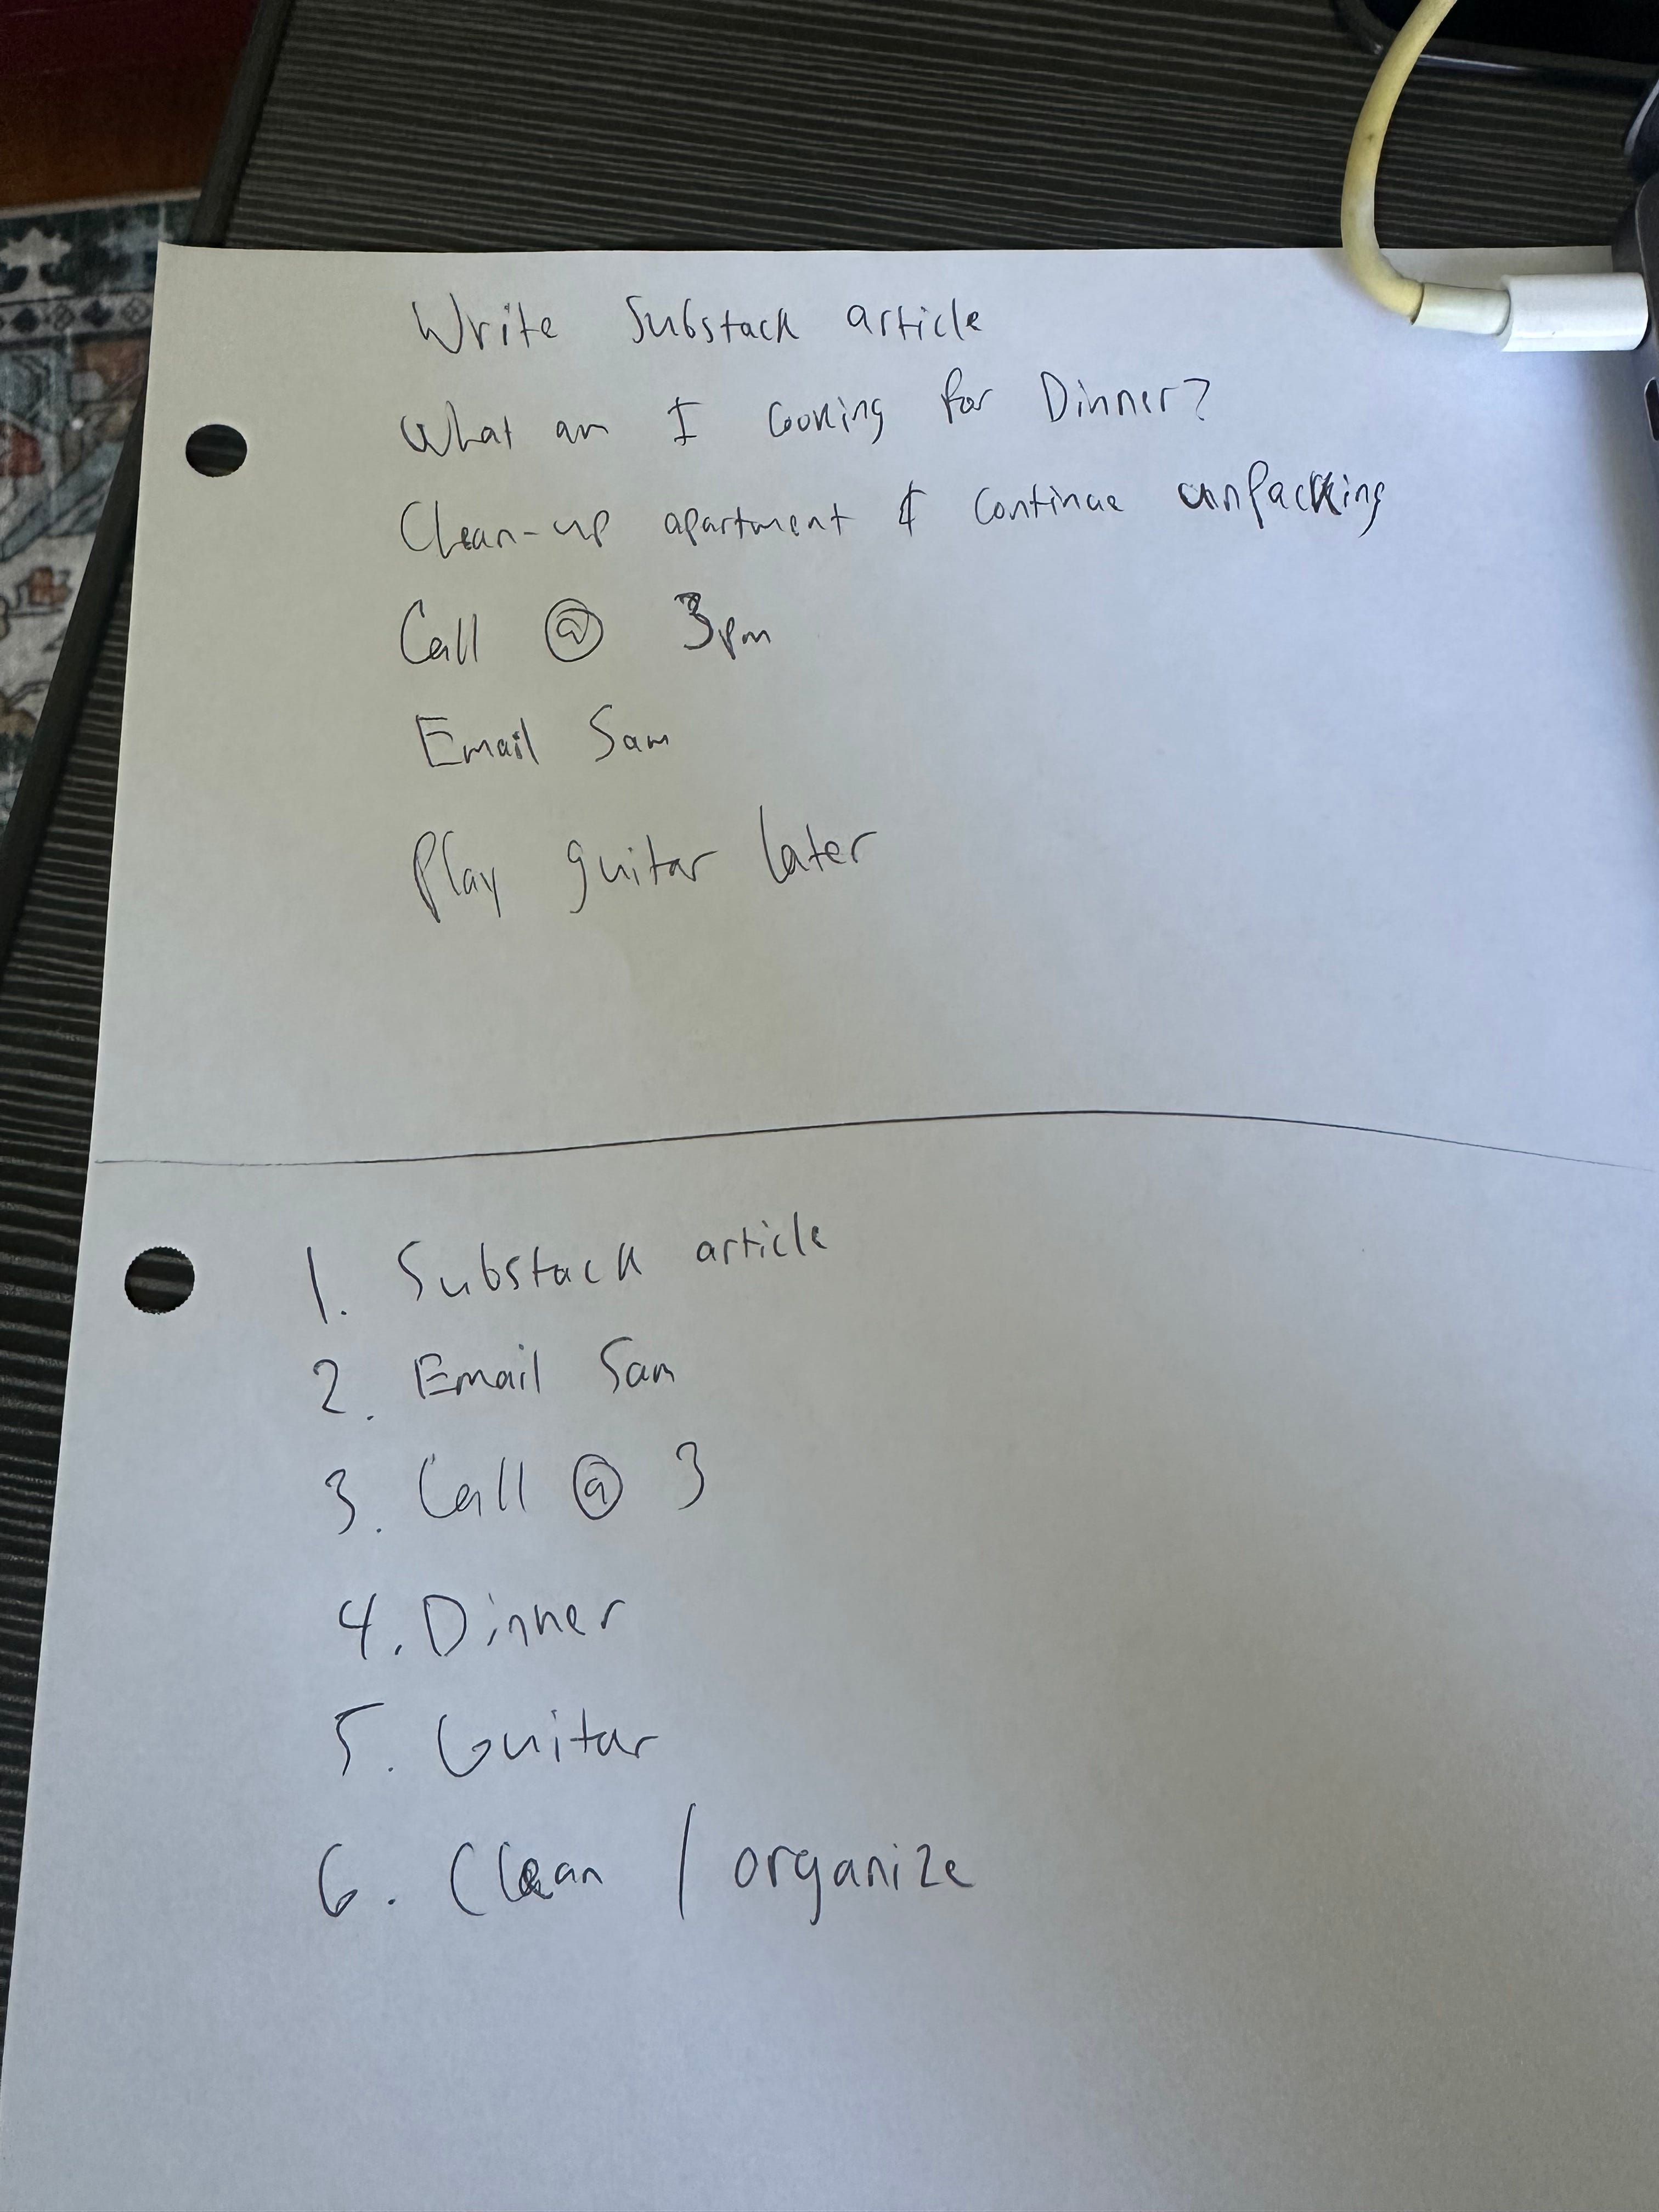 Write Substack article
What am I cooking for Dinner?
Clean-up apartment & continue unpacking
Call @ 3pm
Email Sam
Play guitar later
1. Substack article
2. Email Sam
3. Call @ 3
4. Dinner
5. Guitar
6. Clean / organize